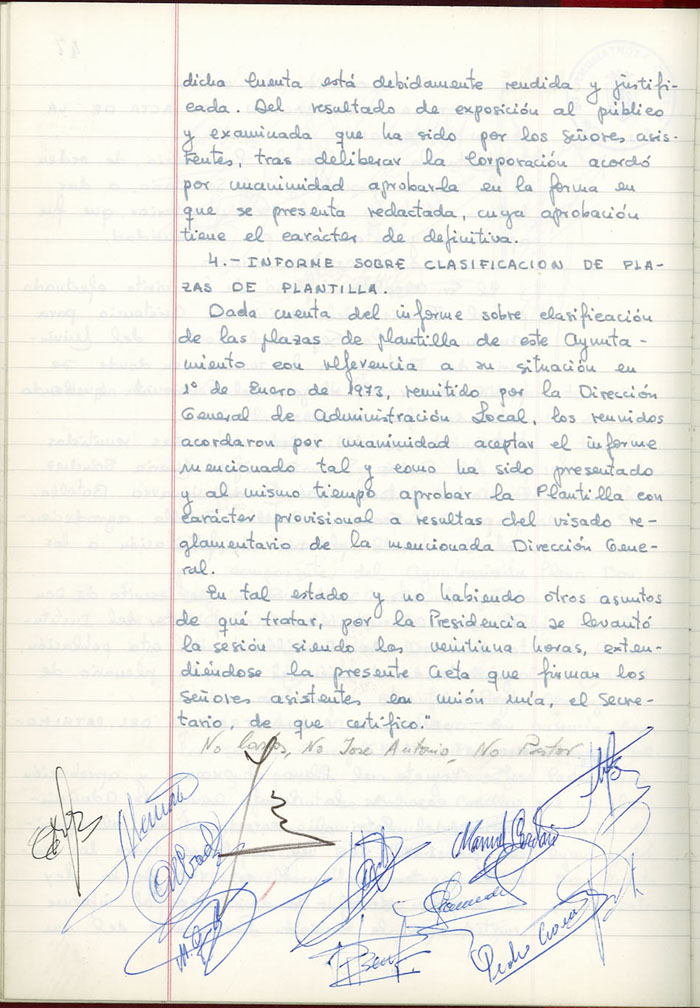 dicha Cuenta está debidamente rendida y justifi-
cada. Del resultado de exposición al público
y examinada que ha sido por los Señores asis-
tentes, tras deliberar la Corporación acordó
por unanimidad aprobarla en la forma en
que se presenta redactada, cuya aprobación
tiene el carácter de definitiva.
4.- INFORME SOBRE CLASIFICACION DE PLA-
ZAS DE PLANTILLA.
Dada cuenta del informe sobre clasificación
de las plazas de plantilla de este Ayunta-
miento con referencia a su situación en
1º de Enero de 1973, remitido por la Dirección
General de Administración Local, los reunidos
acordaron por unanimidad aceptar el informe
mencionado tal y como ha sido presentado
y al mismo tiempo aprobar la Plantilla con
carácter provisional a resultas del visado re-
glamentario de la mencionada Dirección Gene-
ral.
En tal estado y no habiendo otros asuntos
de qué tratar, por la Presidencia se levantó
la sesión siendo las veintiuna horas, exten-
diéndose la presente Acta que firman los
Señores asistentes en unión mía, el Secre-
tario, de que certifico."
No José Antonio, No Pastor
Manuel
Pedro